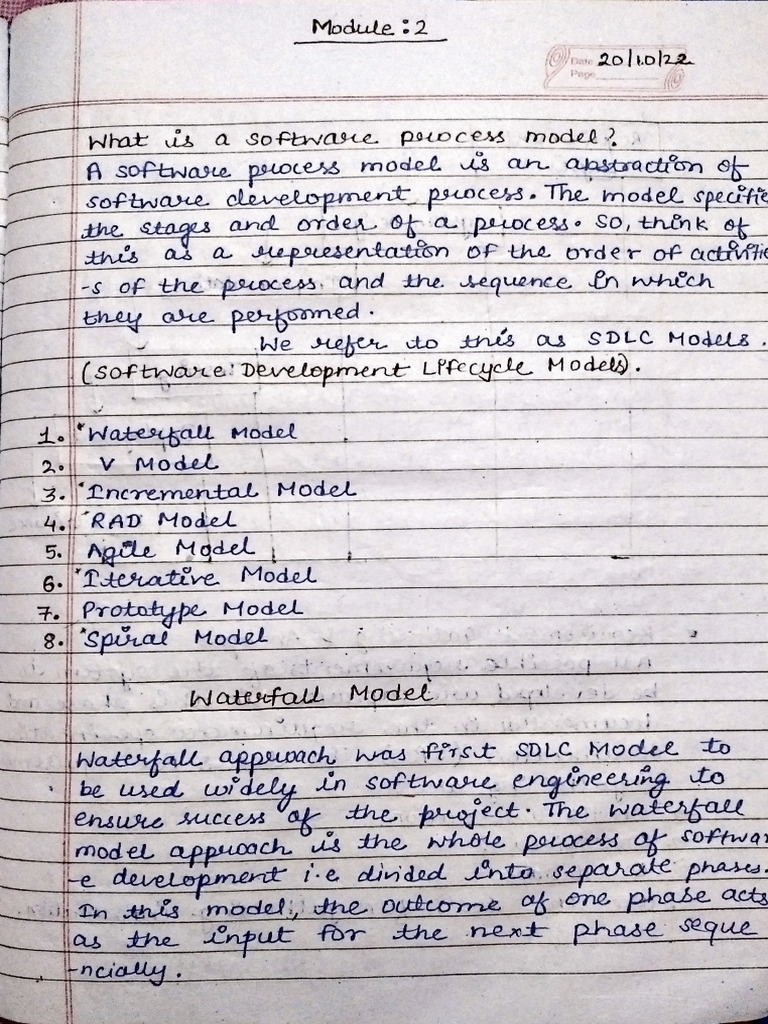 Module : 2
Date 20/10/22
Page
What is a software process model?
A software process model is an abstraction of
software development process. The model specifie
the stages and order of a process. So, think of
this as a representation of the order of activitie
-s of the process and the sequence in which
they are performed.
We refer to this as SDLC Models.
(Software Development Lifecycle Models).
1. Waterfall Model
2. V Model
3. Incremental Model
4. RAD Model
5. Agile Model
6. Iterative Model
7. Prototype Model
8. Spiral Model
Waterfall Model
Waterfall approach was first SDLC Model to
be used widely in software engineering to
ensure success of the project. The waterfall
model approach is the whole process of softwar
-e development i.e divided into separate phases.
In this model, the outcome of one phase acts
as the input for the next phase seque
-ncially.